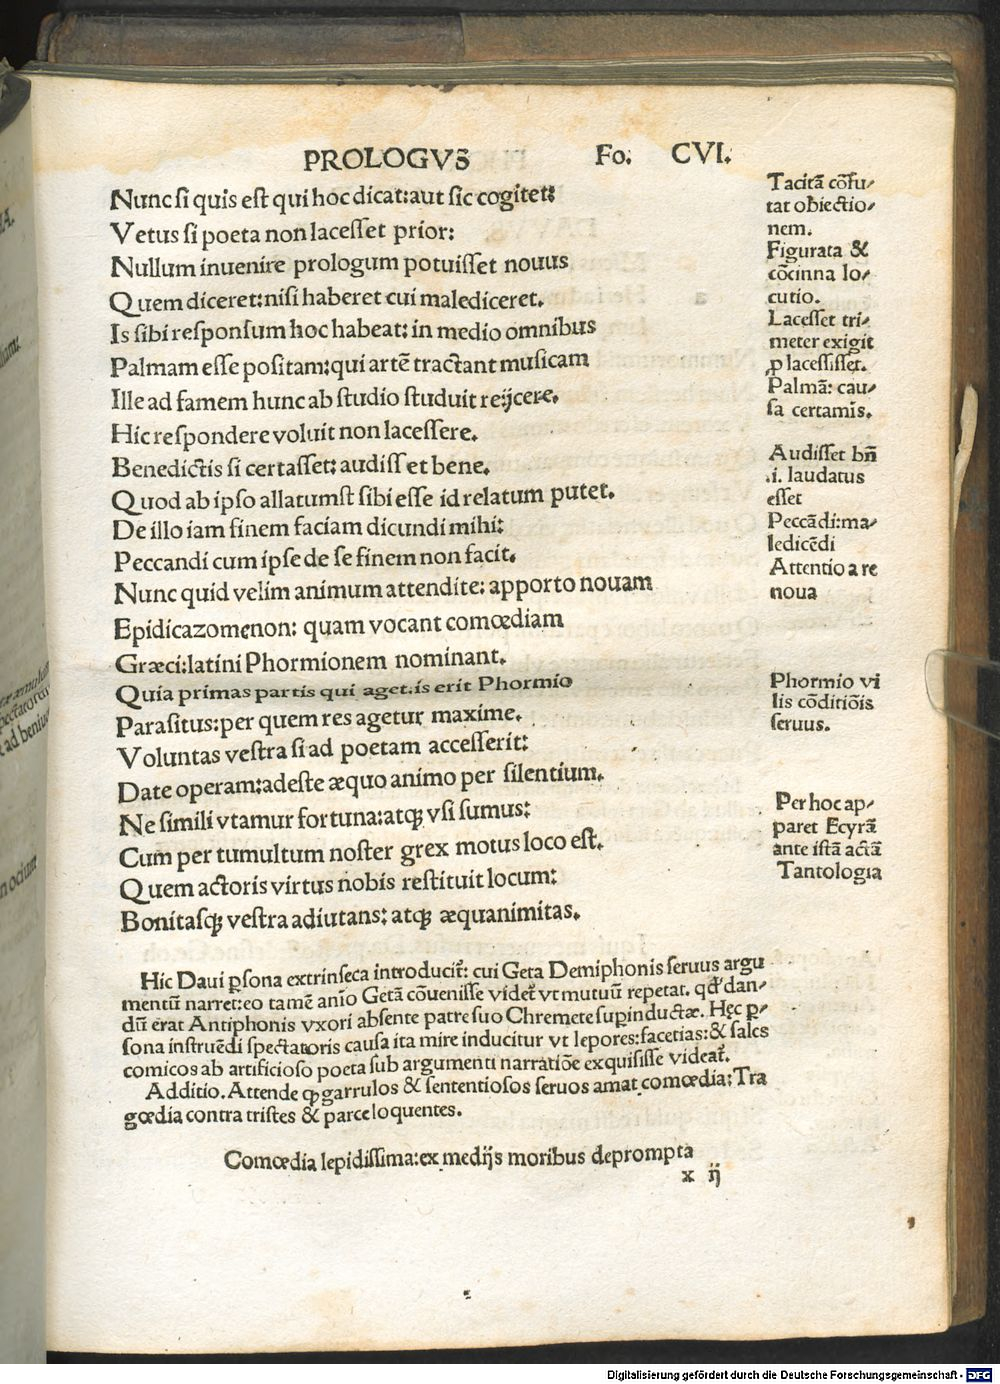 PROLOGVS Fo. CVI.
Nunc si quis est qui hoc dicat: aut sic cogitet:
Vetus si poeta non lacesset prior:
Nullum inuenire prologum potuisset nouus
Quem diceret: nisi haberet cui malediceret.
Is sibi responsum hoc habeat: in medio omnibus
Palmam esse positam: qui artē tractant musicam
Ille ad famem hunc ab studio studuit reijcere.
Hic respondere voluit non lacessere.
Benedictis si certasset: audiss et bene.
Quod ab ipso allatumst sibi esse id relatum putet.
De illo iam finem faciam dicundi mihi:
Peccandi cum ipse de se finem non facit.
Nunc quid velim animum attendite: apporto nouam
Epidicazomenon: quam vocant comœdiam
Græci: latini Phormionem nominant.
Quia primas partis qui aget: is erit Phormio
Parasitus: per quem res agetur maxime.
Voluntas vestra si ad poetam accesserit:
Date operam: adeste æquo animo per silentium.
Ne simili vtamur fortuna: atqꝫ vsi sumus:
Cum per tumultum noster grex motus loco est.
Quem actoris virtus nobis restituit locum:
Bonitasqꝫ vestra adiutans: atqꝫ æquanimitas.
Tacitā cōfu-
tat obiectio-
nem.
Figurata &
cōcinna lo-
cutio.
Lacesset tri-
meter exigit
ꝓ lacessisset.
Palmā: cau-
sa certamīs.
Audisset bn̄
.i. laudatus
esset
Peccādi: ma-
ledicēdi
Attentio a re
noua
Phormio vi
lis cōditiōis
seruus.
Per hoc ap-
paret Ecyrā
ante istā actā
Tantologia
Hic Daui ꝑsona extrinseca introducit᷑: cui Geta Demiphonis seruus argu
mentū narret: eo tamē anīo Getā cōuenisse videt᷑ vt mutuū repetat. qd̄ dan-
dū erat Antiphonis vxori absente patre suo Chremete supinductæ. Hęc ꝑ-
sona instruēdi spectatoris causa ita mire inducitur vt lepores: facetias: & sales
comicos ab artificioso poeta sub argumenti narratiōe exquisisse videat᷑.
Additio. Attende qꝫ garrulos & sententiosos seruos amat comœdia: Tra
gœdia contra tristes & parce loquentes.
Comœdia lepidissima: ex medijs moribus deprompta
x ij
Digitalisierung gefördert durch die Deutsche Forschungsgemeinschaft - DFG